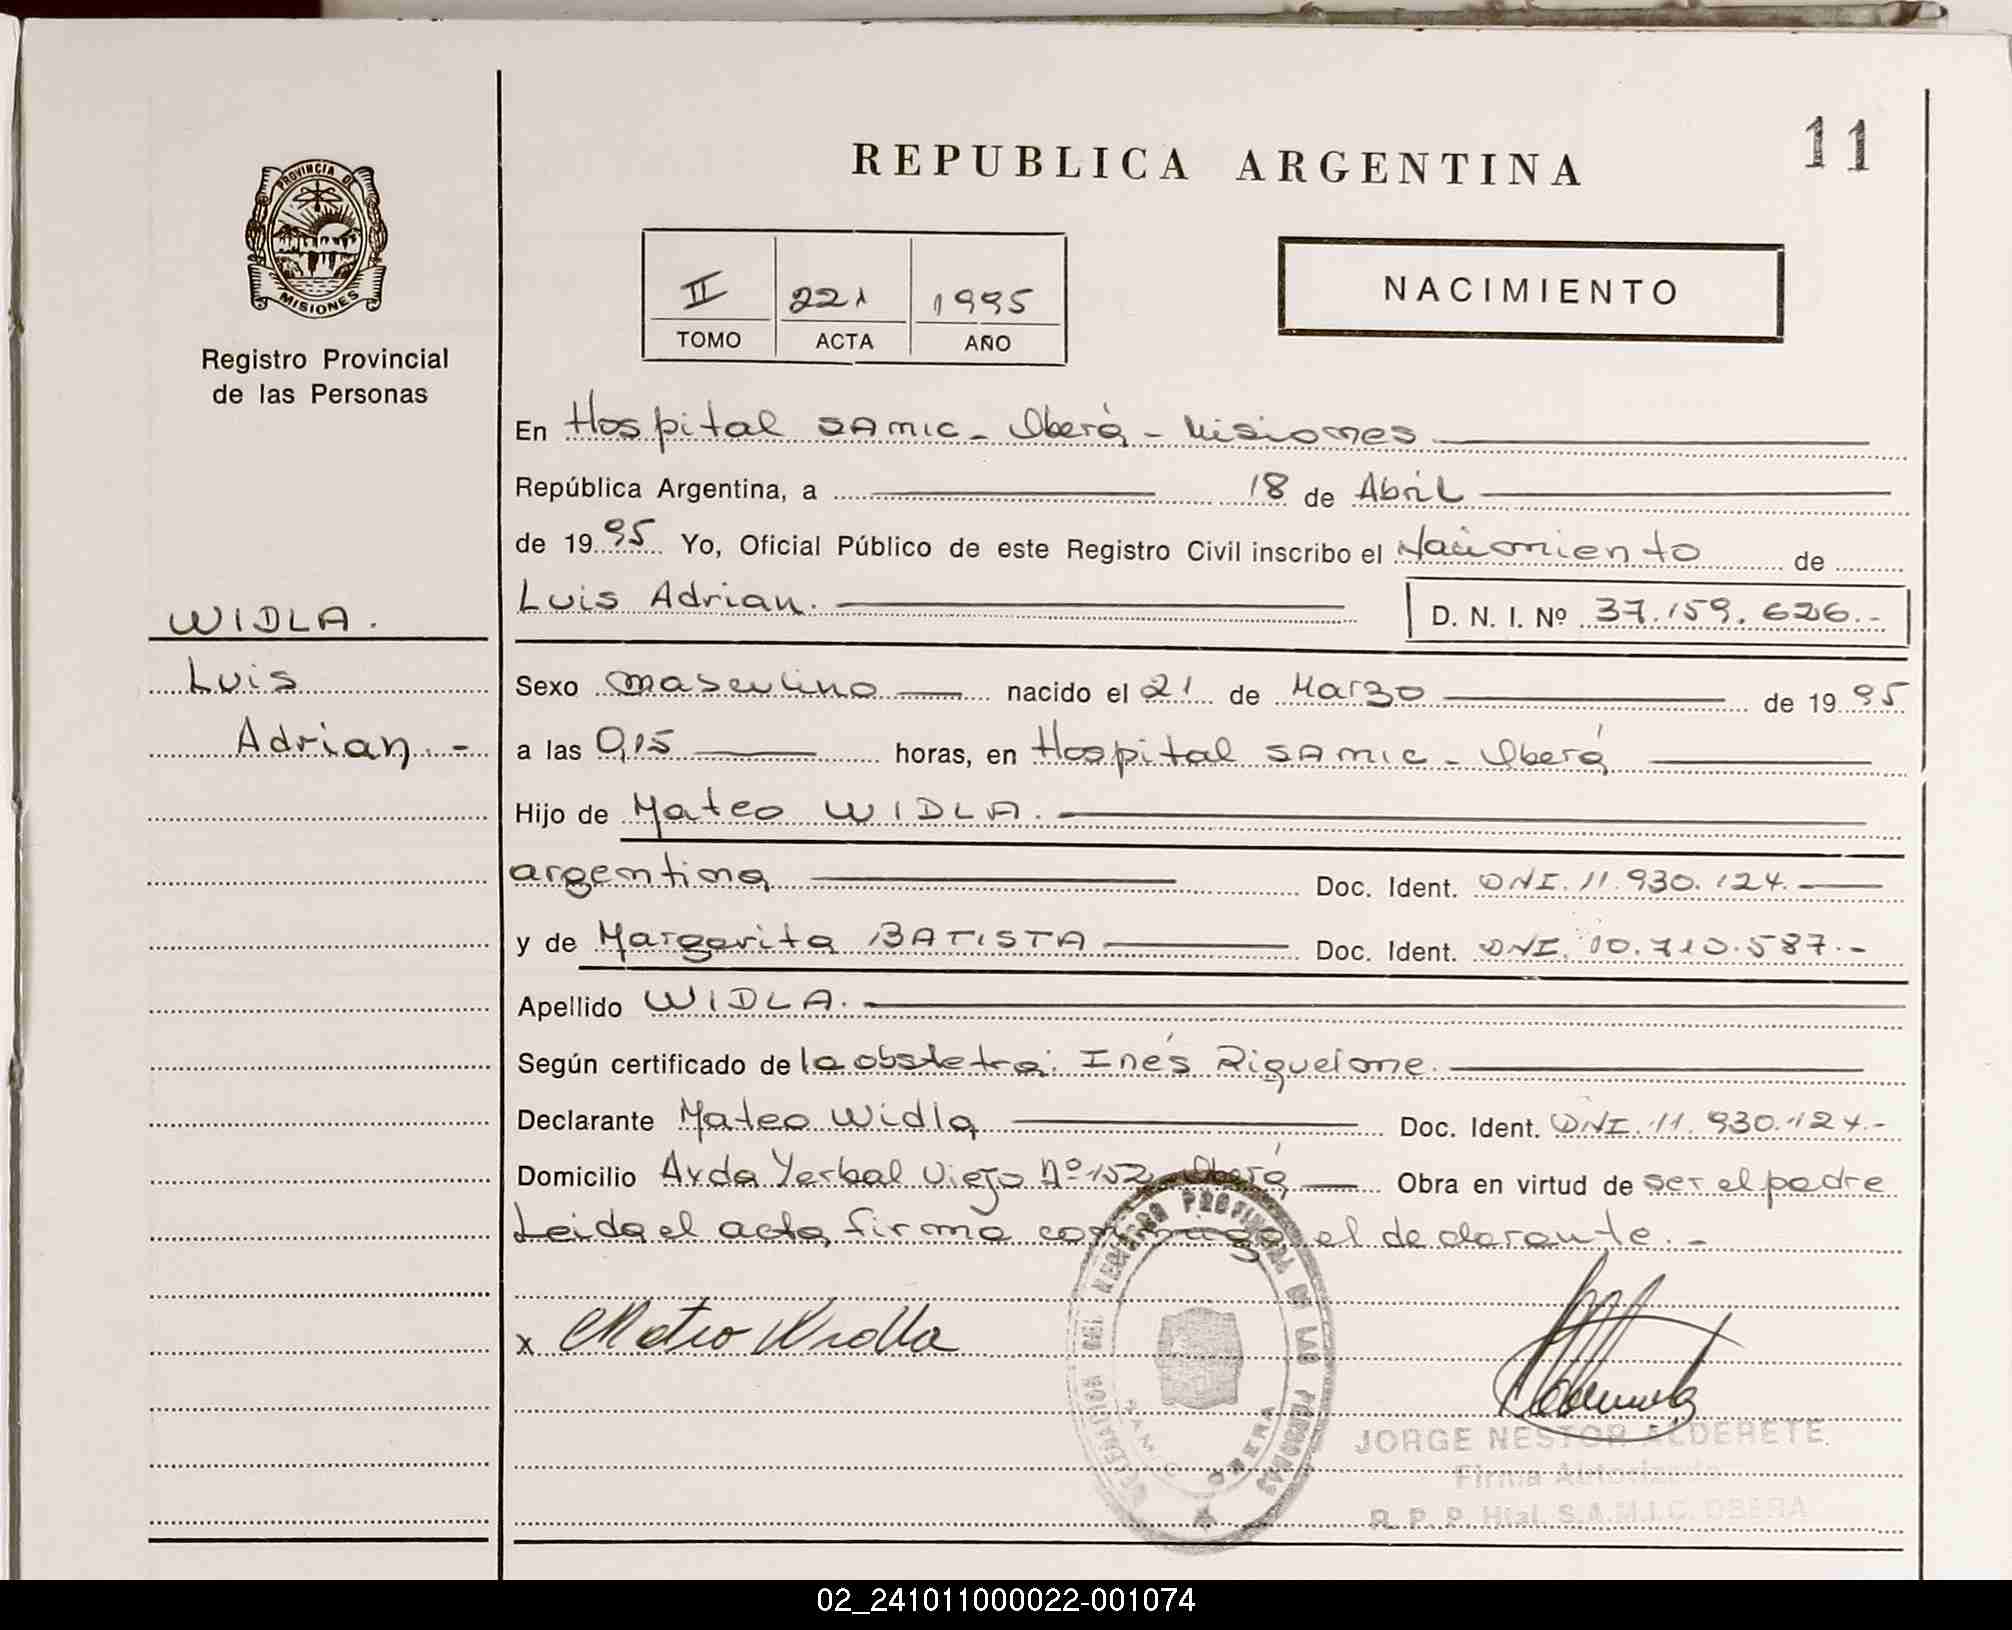 REPUBLICA ARGENTINA
11
PROVINCIA DE
MISIONES
Registro Provincial
de las Personas
II 221 1995
TOMO ACTA AÑO
NACIMIENTO
En Hospital SAMIC - Oberá - Misiones
República Argentina, a 18 de Abril
de 1995 Yo, Oficial Público de este Registro Civil inscribo el Nacimiento de
Luis Adrian. D. N. I. Nº 37.159.626.-
WIDLA.
Luis
Adrian.-
Sexo masculino nacido el 21 de Marzo de 1995
a las 0,15 horas, en Hospital SAMIC - Oberá
Hijo de Mateo WIDLA.
argentina Doc. Ident. DNI. 11.930.124.
y de Margarita BATISTA Doc. Ident. DNI. 10.710.587.-
Apellido WIDLA.
Según certificado de la obstetra: Inés Riquelme.
Declarante Mateo Widla Doc. Ident. DNI. 11.930.124.-
Domicilio Avda Yerbal Viejo Nº 152 Oberá Obra en virtud de ser el padre
Leida el acta, firma conmigo el declarante.-
x Mateo Widla
REGISTRO PROVINCIAL DE LAS PERSONAS
OBERA
JORGE NESTOR ALDERETE
Firma Autorizada
R. P. P. Htal. S.A.M.I.C. OBERA
02_241011000022-001074